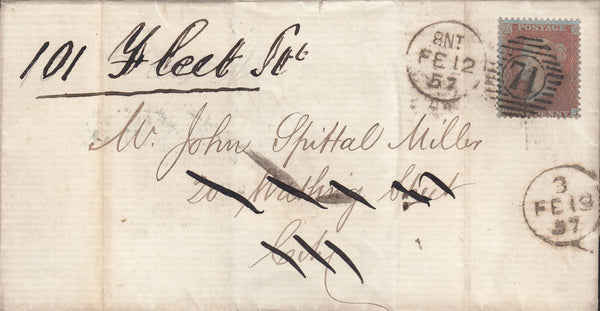 101 Fleet St
8NT
FE 12
57
POSTAGE
71
PENNY
Mr. John Spittal Miller
20 Watling Street
City
3
FE 13
57